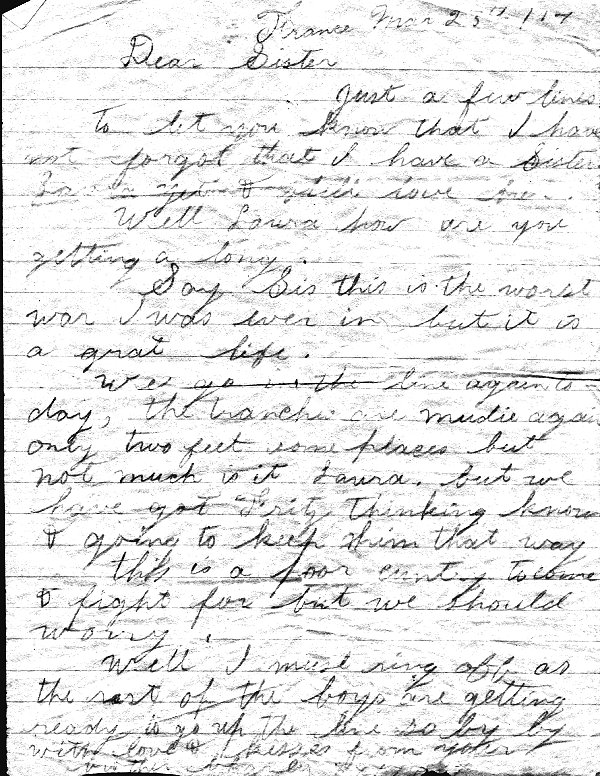 France Mar 25th /17
Dear Sister
Just a few lines
to let you know that I have
not forgot that I have a Sister
& still love her.
Well Laura how are you
getting a long.
Say Sis this is the worst
war I was ever in but it is
a grat life.
We go in the line again to
day, the tranches are mudie again
only two feet some places but
not much is it Laura. but we
have got Fritz thinking know
& going to keep him that way
this is a poor cuntry to come
& fight for but we should
worry.
Well I must ring off as
the rest of the boys are getting
ready to go up the line so by by
with love & kisses from your